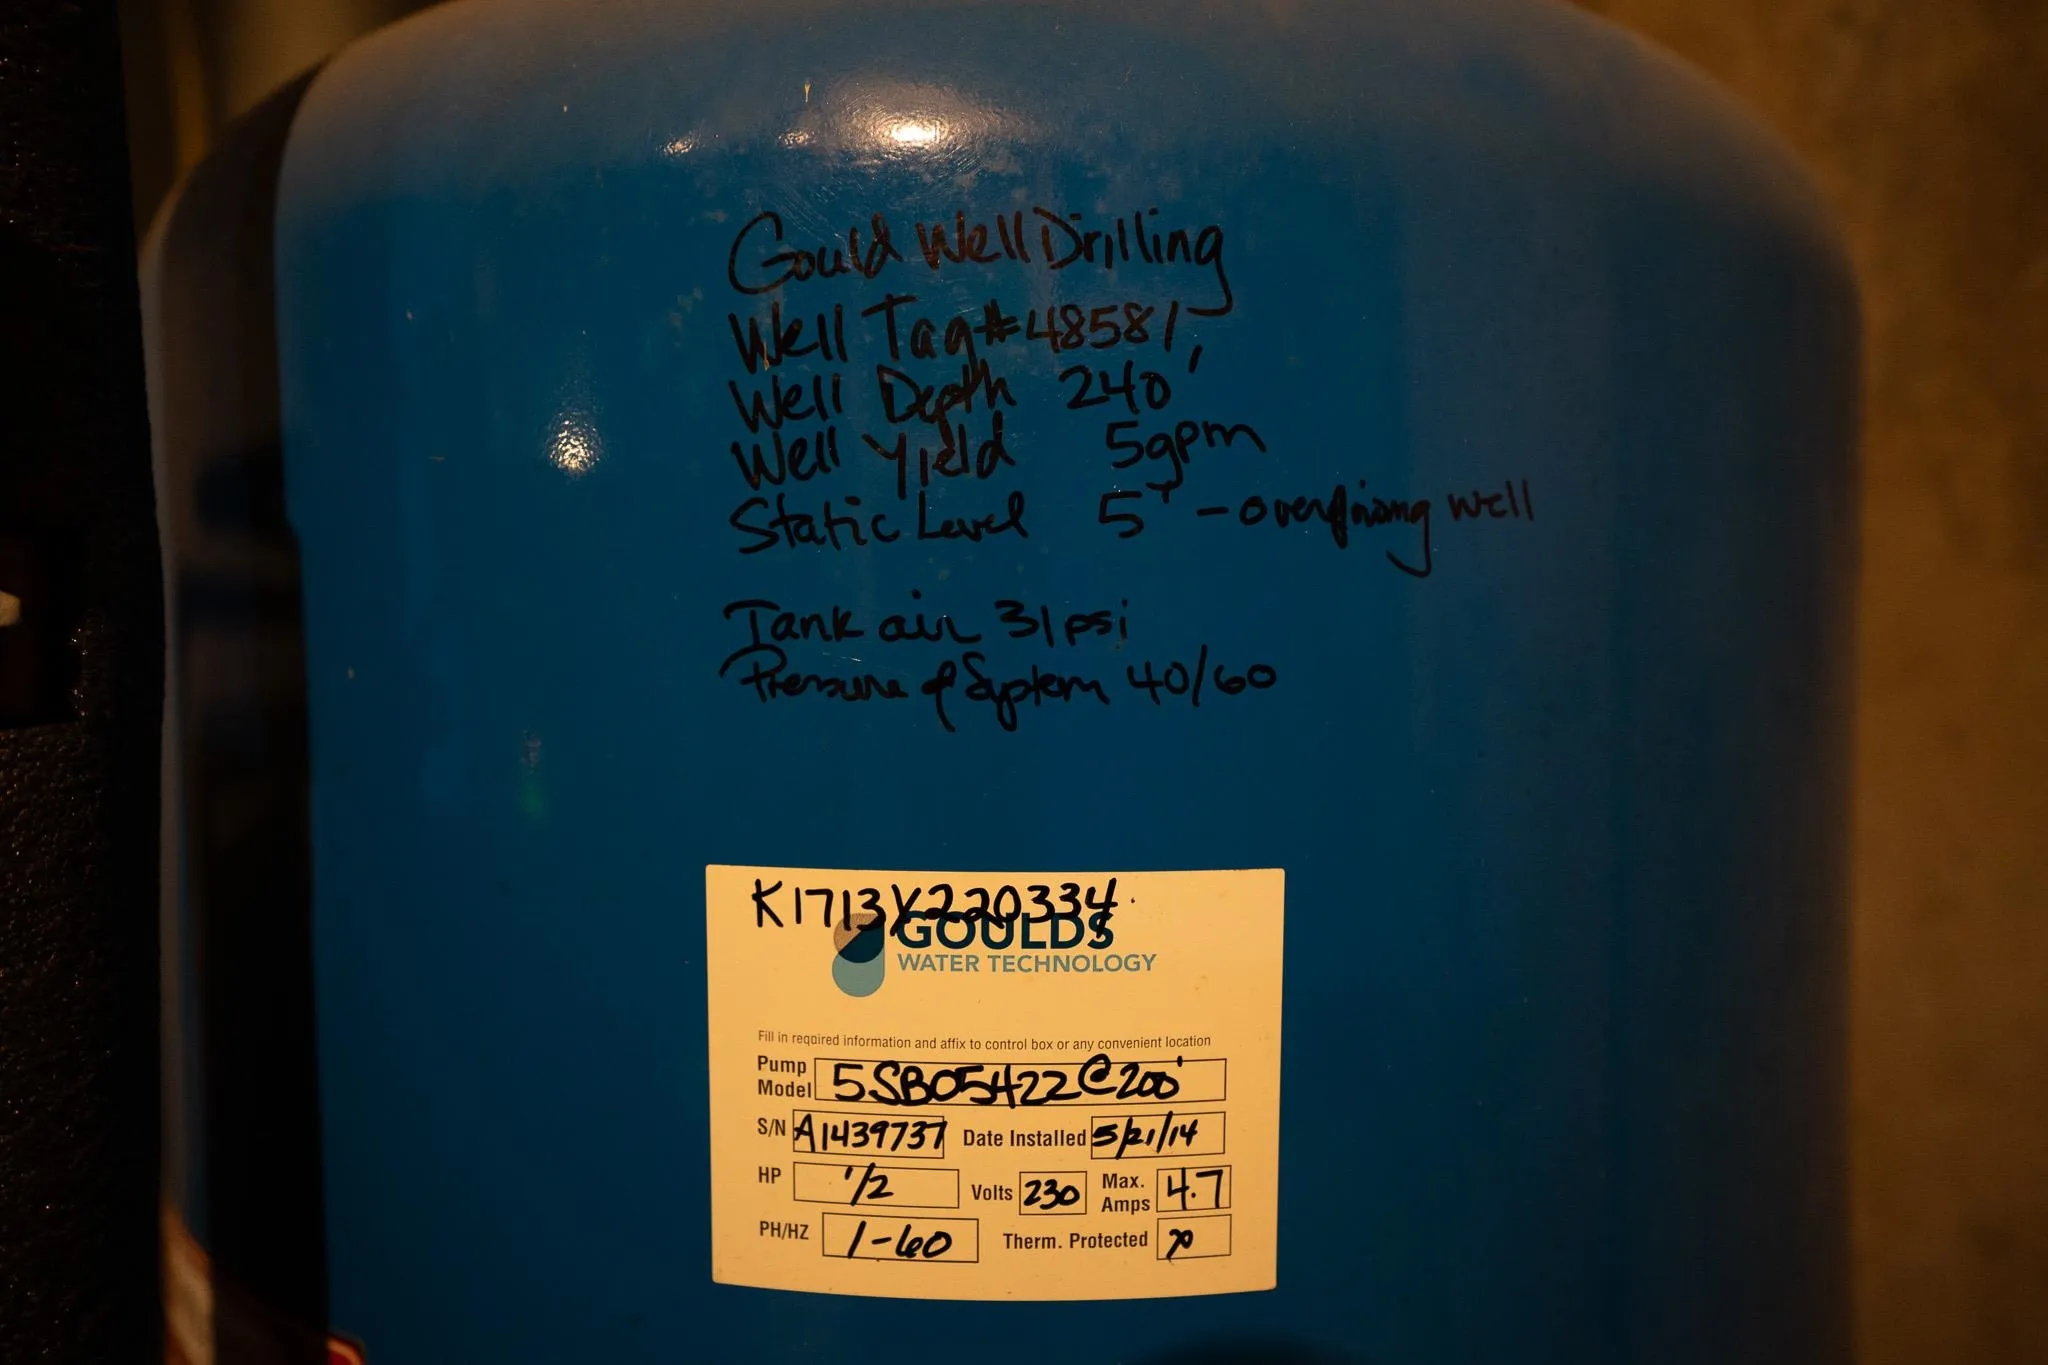 Gould Well Drilling
Well Tag # 48581
Well Depth 240'
Well Yield 5gpm
Static Level 5' - overflowing well
Tank air 31 psi
Pressure of System 40/60
K1713Y220334
GOULDS
WATER TECHNOLOGY
Fill in required information and affix to control box or any convenient location
Pump Model 5SB05422@200'
S/N A1439737 Date Installed 5/21/14
HP 1/2 Volts 230 Max. Amps 4.7
PH/HZ 1-60 Therm. Protected